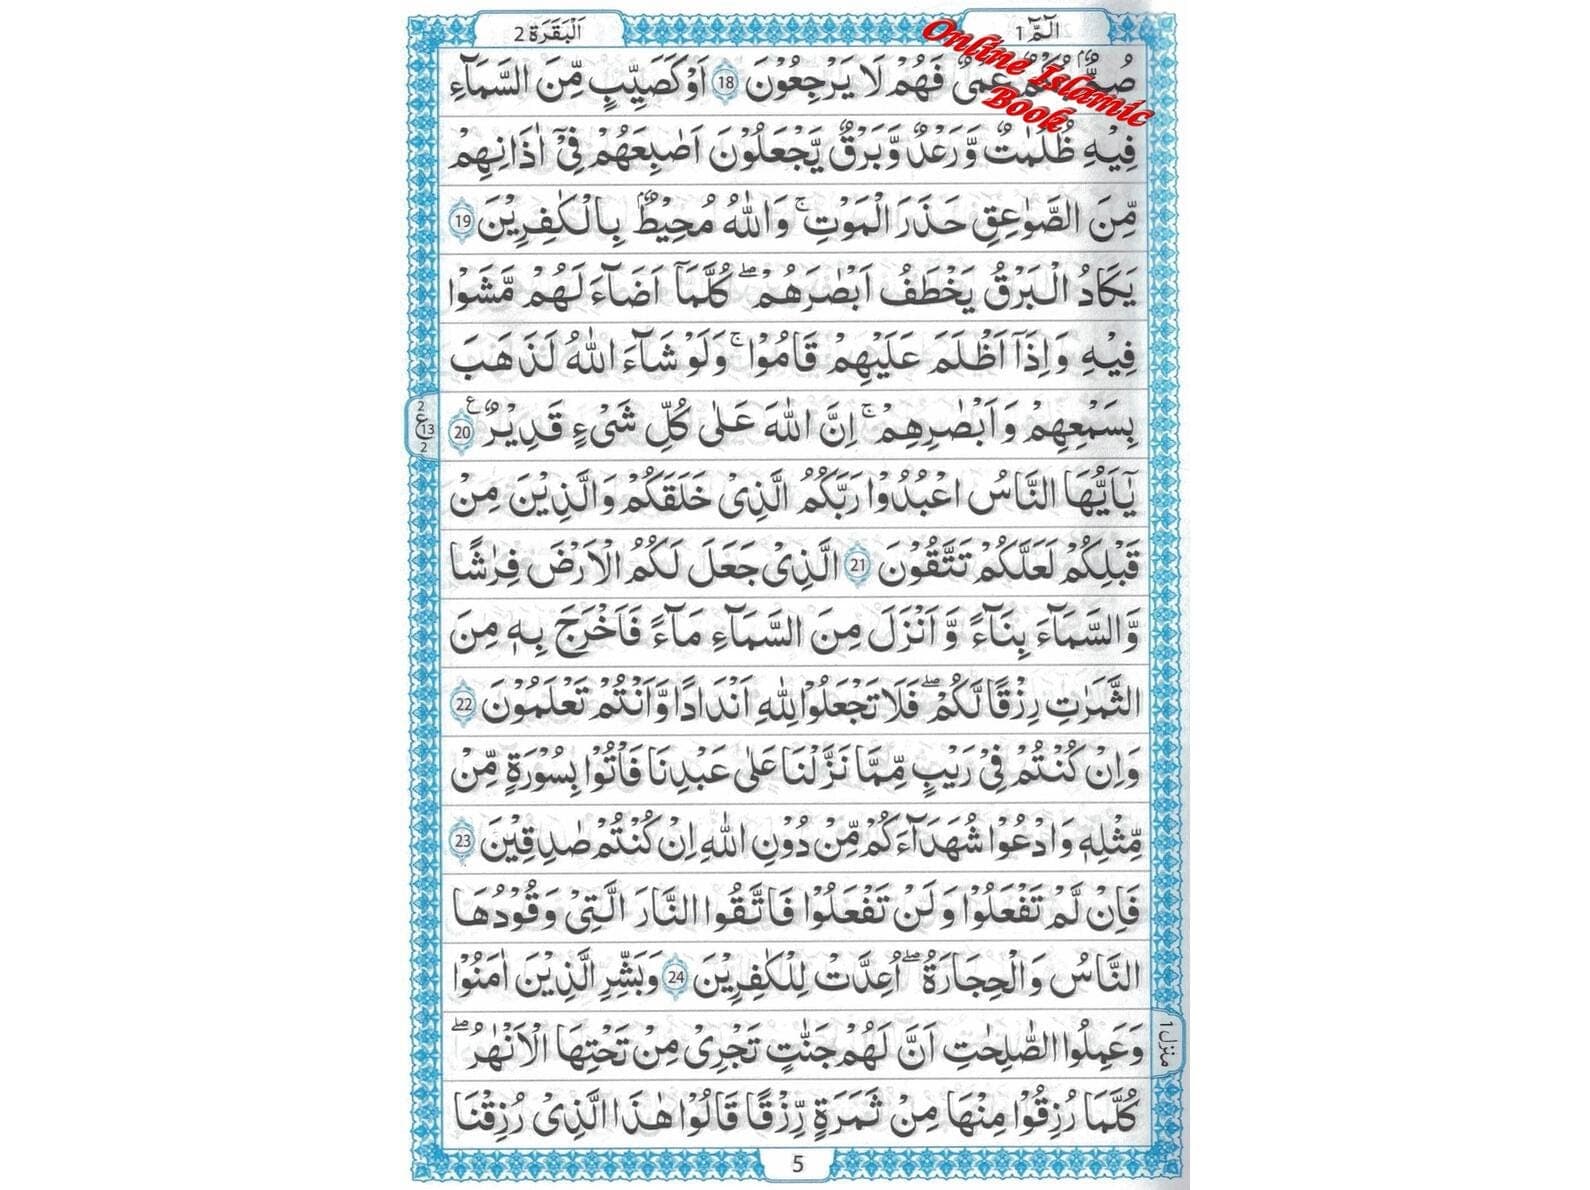 الٓمّٓ 1
اَلْبَقَرَة 2
Online Islamic
Book
صُمٌّۢ بُكْمٌ عُمْىٌ فَهُمْ لَا يَرْجِعُوْنَ 18 اَوْ كَصَيِّبٍ مِّنَ السَّمَآءِ
فِيْهِ ظُلُمٰتٌ وَّرَعْدٌ وَّبَرْقٌ يَّجْعَلُوْنَ اَصٰبِعَهُمْ فِىْۤ اٰذَانِهِمْ
مِّنَ الصَّوٰعِقِ حَذَرَ الْمَوْتِ ۚ وَاللّٰهُ مُحِيْطٌۢ بِالْكٰفِرِيْنَ 19
يَكَادُ الْبَرْقُ يَخْطَفُ اَبْصٰرَهُمْ ۖ كُلَّمَاۤ اَضَآءَ لَهُمْ مَّشَوْا
فِيْهِ وَاِذَاۤ اَظْلَمَ عَلَيْهِمْ قَامُوْا ۚ وَلَوْ شَآءَ اللّٰهُ لَذَهَبَ
بِسَمْعِهِمْ وَاَبْصٰرِهِمْ ۚ اِنَّ اللّٰهَ عَلٰى كُلِّ شَىْءٍ قَدِيْرٌ 20 ع
2 ع 13 2
يٰۤاَيُّهَا النَّاسُ اعْبُدُوْا رَبَّكُمُ الَّذِىْ خَلَقَكُمْ وَالَّذِيْنَ مِنْ
قَبْلِكُمْ لَعَلَّكُمْ تَتَّقُوْنَ 21 الَّذِىْ جَعَلَ لَكُمُ الْاَرْضَ فِرٰشًا
وَّالسَّمَآءَ بِنَآءً وَّاَنْزَلَ مِنَ السَّمَآءِ مَآءً فَاَخْرَجَ بِهٖ مِنَ
الثَّمَرٰتِ رِزْقًا لَّكُمْ ۖ فَلَا تَجْعَلُوْا لِلّٰهِ اَنْدَادًا وَّاَنْتُمْ تَعْلَمُوْنَ 22
وَاِنْ كُنْتُمْ فِىْ رَيْبٍ مِّمَّا نَزَّلْنَا عَلٰى عَبْدِنَا فَاْتُوْا بِسُوْرَةٍ مِّنْ
مِّثْلِهٖ وَادْعُوْا شُهَدَآءَكُمْ مِّنْ دُوْنِ اللّٰهِ اِنْ كُنْتُمْ صٰدِقِيْنَ 23
فَاِنْ لَّمْ تَفْعَلُوْا وَلَنْ تَفْعَلُوْا فَاتَّقُوا النَّارَ الَّتِىْ وَقُوْدُهَا
النَّاسُ وَالْحِجَارَةُ ۖ اُعِدَّتْ لِلْكٰفِرِيْنَ 24 وَبَشِّرِ الَّذِيْنَ اٰمَنُوْا
وَعَمِلُوا الصّٰلِحٰتِ اَنَّ لَهُمْ جَنّٰتٍ تَجْرِىْ مِنْ تَحْتِهَا الْاَنْهٰرُ ۖ
منزل 1
كُلَّمَا رُزِقُوْا مِنْهَا مِنْ ثَمَرَةٍ رِّزْقًا قَالُوْا هٰذَا الَّذِىْ رُزِقْنَا
5